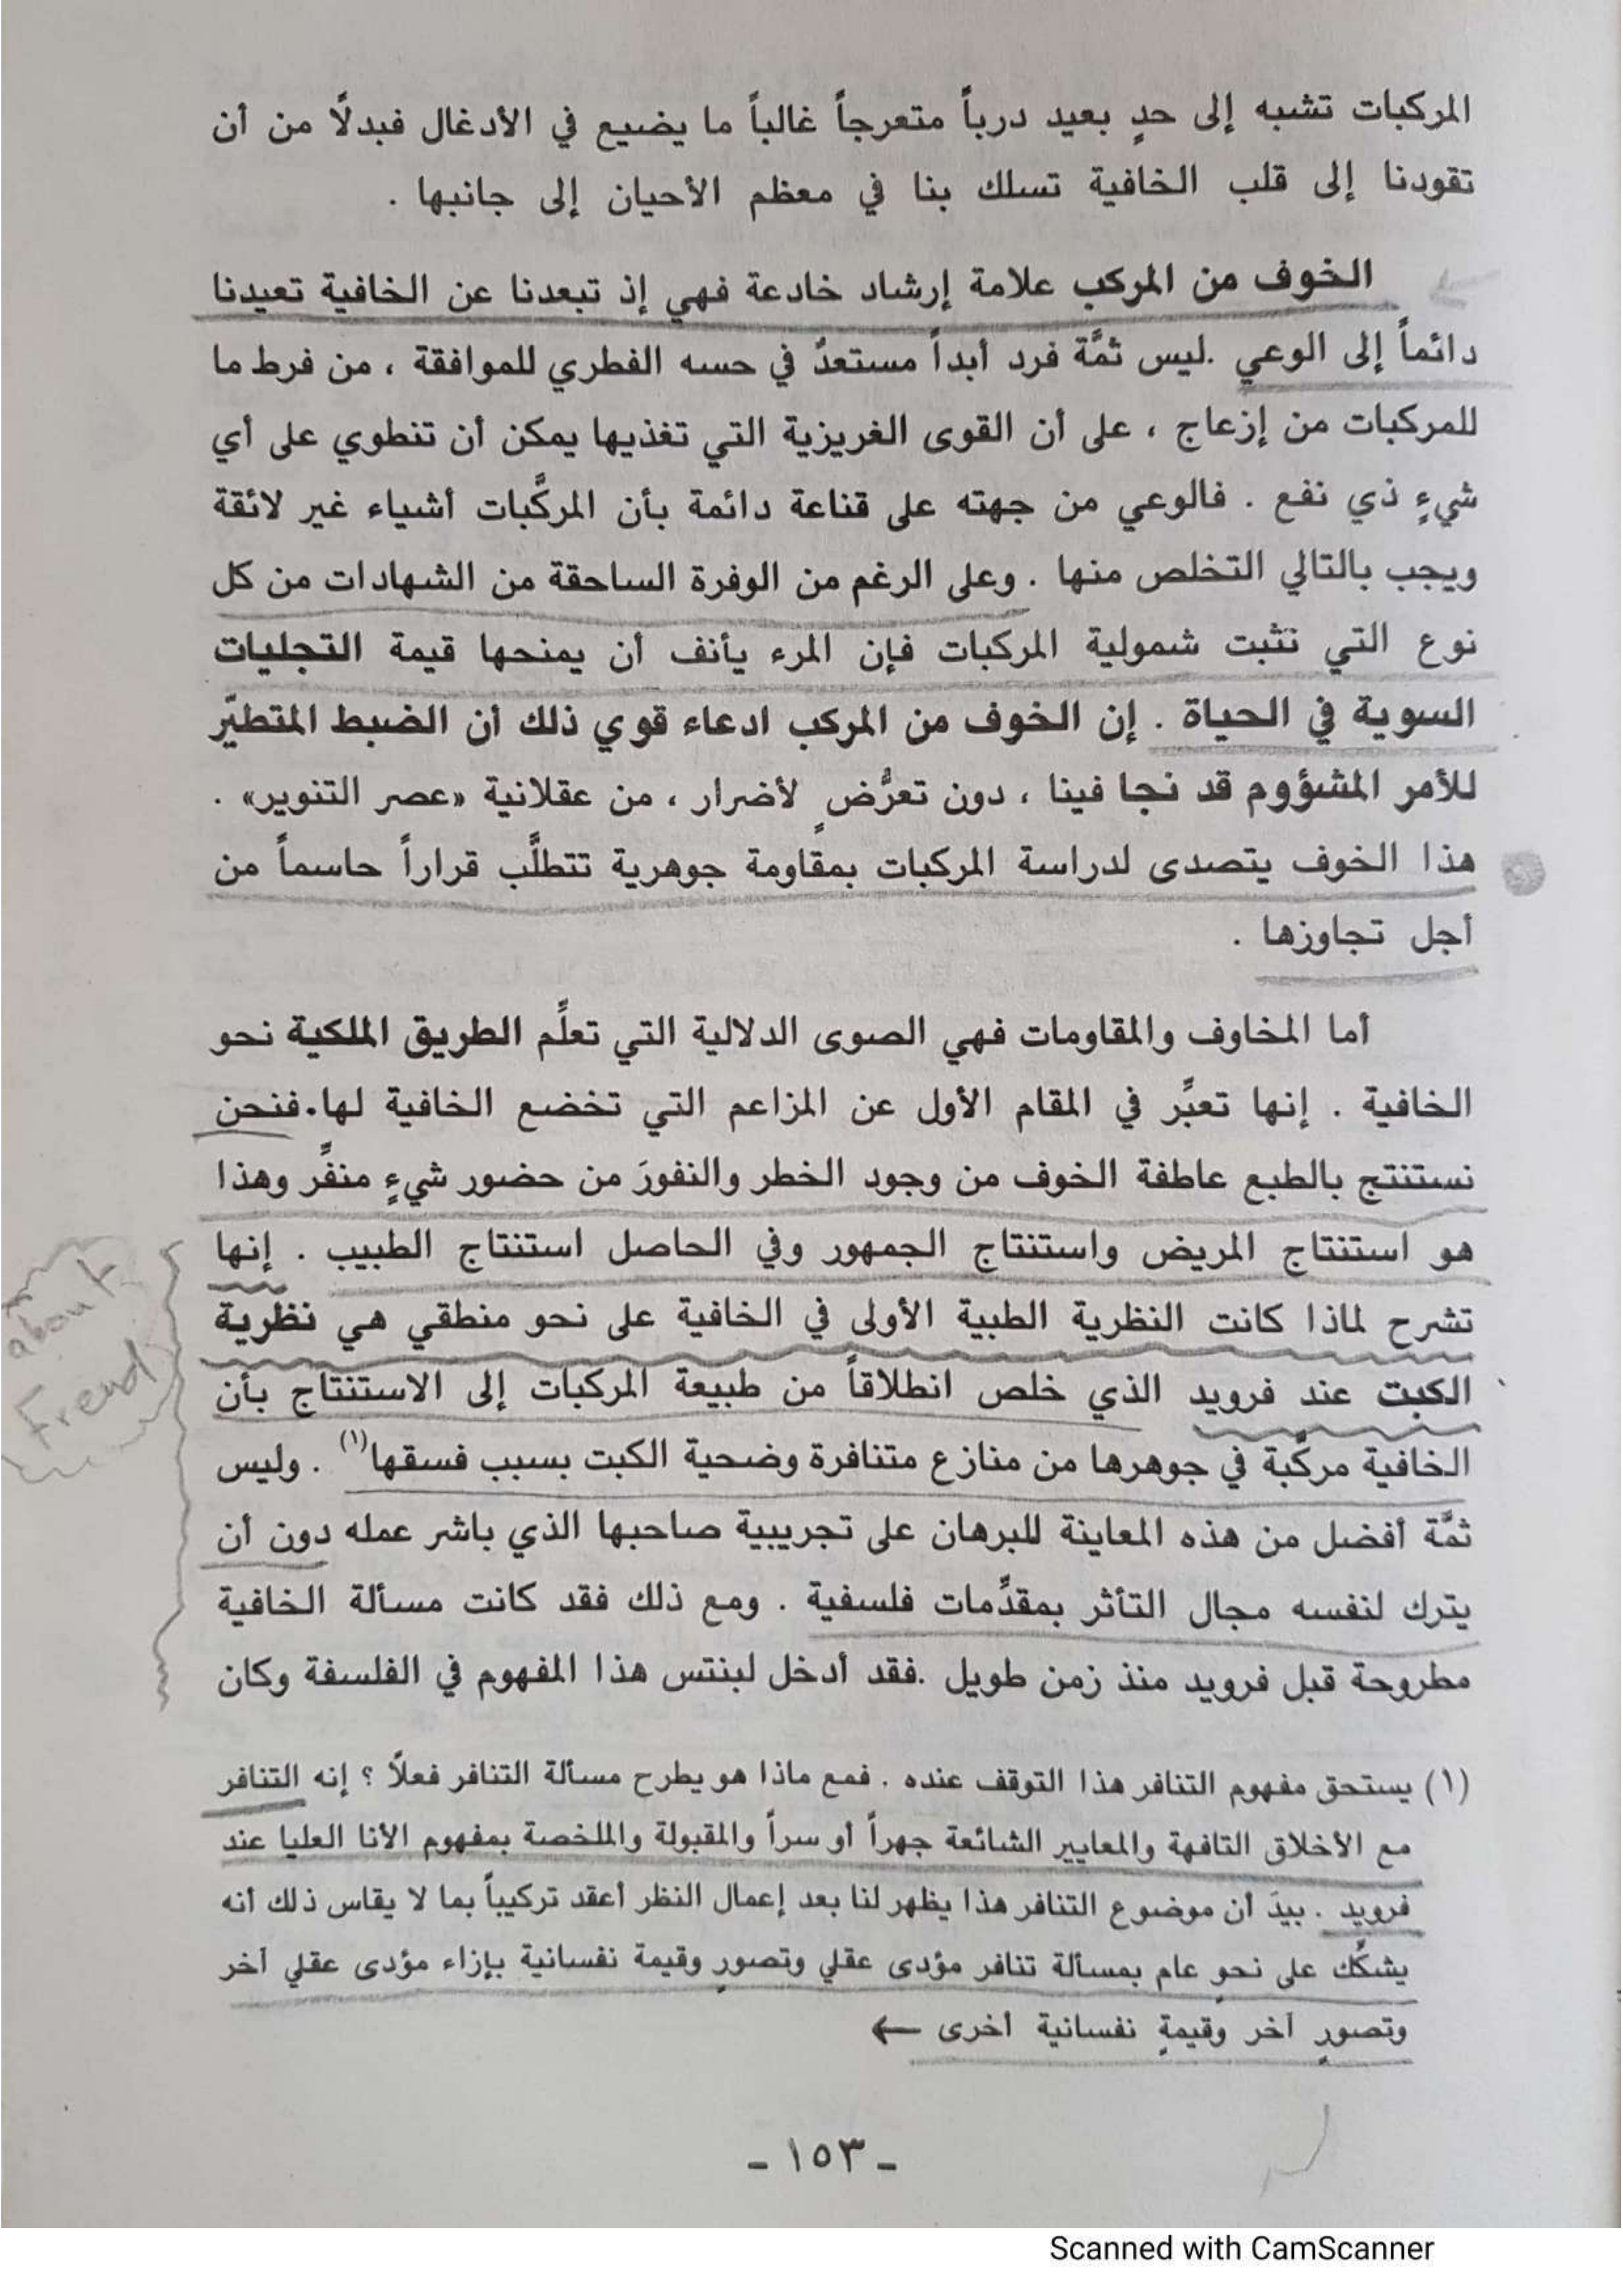 المركبات تشبه إلى حدٍ بعيد درباً متعرجاً غالباً ما يضيع في الأدغال فبدلًا من أن
تقودنا إلى قلب الخافية تسلك بنا في معظم الأحيان إلى جانبها .
الخوف من المركب علامة إرشاد خادعة فهي إذ تبعدنا عن الخافية تعيدنا
دائماً إلى الوعي .ليس ثمَّة فرد أبداً مستعدٌ في حسه الفطري للموافقة ، من فرط ما
للمركبات من إزعاج ، على أن القوى الغريزية التي تغذيها يمكن أن تنطوي على أي
شيءٍ ذي نفع . فالوعي من جهته على قناعة دائمة بأن المركَّبات أشياء غير لائقة
ويجب بالتالي التخلص منها . وعلى الرغم من الوفرة الساحقة من الشهادات من كل
نوع التي تثبت شمولية المركبات فإن المرء يأنف أن يمنحها قيمة التجليات
السوية في الحياة . إن الخوف من المركب ادعاء قوي ذلك أن الضبط المتطيّر
للأمر المشؤوم قد نجا فينا ، دون تعرُّضٍ لأضرار ، من عقلانية «عصر التنوير» .
هذا الخوف يتصدى لدراسة المركبات بمقاومة جوهرية تتطلَّب قراراً حاسماً من
أجل تجاوزها .
أما المخاوف والمقاومات فهي الصوى الدلالية التي تعلِّم الطريق الملكية نحو
الخافية . إنها تعبِّر في المقام الأول عن المزاعم التي تخضع الخافية لها.فنحن
نستنتج بالطبع عاطفة الخوف من وجود الخطر والنفورَ من حضور شيءٍ منفِّر وهذا
هو استنتاج المريض واستنتاج الجمهور وفي الحاصل استنتاج الطبيب . إنها
تشرح لماذا كانت النظرية الطبية الأولى في الخافية على نحو منطقي هي نظرية
الكبت عند فرويد الذي خلص انطلاقاً من طبيعة المركبات إلى الاستنتاج بأن
الخافية مركَّبة في جوهرها من منازع متنافرة وضحية الكبت بسبب فسقها(١) . وليس
ثمَّة أفضل من هذه المعاينة للبرهان على تجريبية صاحبها الذي باشر عمله دون أن
يترك لنفسه مجال التأثر بمقدِّمات فلسفية . ومع ذلك فقد كانت مسألة الخافية
مطروحة قبل فرويد منذ زمن طويل .فقد أدخل لبنتس هذا المفهوم في الفلسفة وكان
about
Freud
(١) يستحق مفهوم التنافر هذا التوقف عنده . فمع ماذا هو يطرح مسألة التنافر فعلًا ؟ إنه التنافر
مع الأخلاق التافهة والمعايير الشائعة جهراً أو سراً والمقبولة والملخصة بمفهوم الأنا العليا عند
فرويد . بيدَ أن موضوع التنافر هذا يظهر لنا بعد إعمال النظر أعقد تركيباً بما لا يقاس ذلك أنه
يشكِّك على نحوٍ عام بمسألة تنافر مؤدى عقلي وتصورٍ وقيمة نفسانية بإزاء مؤدى عقلي آخر
وتصورٍ آخر وقيمةٍ نفسانية أخرى ←
- ١٥٣ -
Scanned with CamScanner